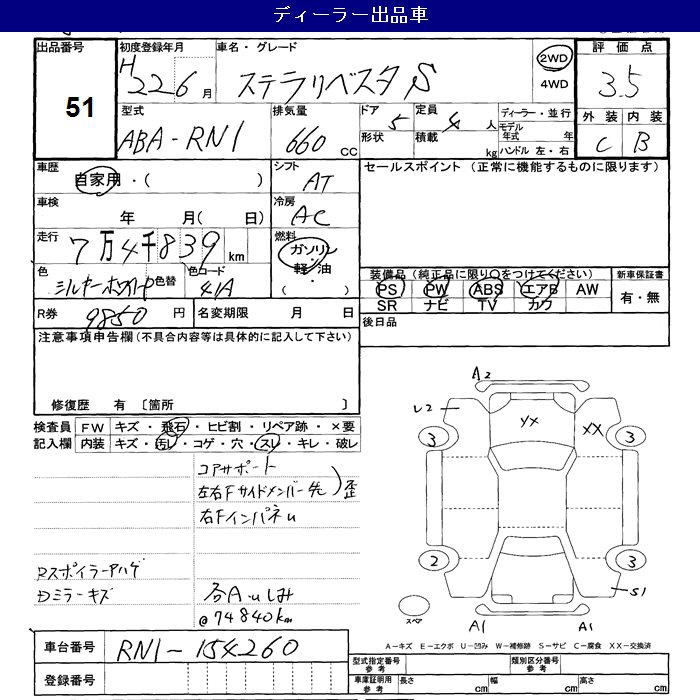 ディーラー出品車
出品番号 初度登録年月 車名・グレード 評価点
51
H22 6月 ステラリベスタS 2WD 4WD 3.5
型式 排気量 ドア 定員 ディーラー・並行 外装 内装
ABA-RN1 660 CC 5 4人 モデル年式 年 C B
形状 積載 kg ハンドル 左・右
車歴 シフト セールスポイント (正常に機能するものに限ります)
自家用・( ) AT
車検 冷房
年 月( 日) AC
走行 燃料
7万4千839km ガソリン・軽油・( )
色 色替 色コード 装備品 (純正品に限り○をつけてください) 新車保証書
シルキーホワイトP 41A PS PW ABS エアB AW 有・無
SR ナビ TV カワ
R券 9850円 名変期限 月 日 後日品
注意事項申告欄(不具合内容等は具体的に記入して下さい)
修復歴 有 〔箇所 〕
検査員 FW キズ・飛石・ヒビ割・リペア跡・×要
記入欄 内装 キズ・汚レ・コゲ・穴・スレ・キレ・破レ
コアサポート
左右Fサイドメンバー先 歪
右FインパネU
Rスポイラーアハゲ
Dミラーキズ
各A・uしみ
@74840km
A2
U2 YX XX
3 3
2 3
S1
スペア A1 A1
A-キズ E-エクボ U-凹み W-補修跡 S-サビ C-腐食 XX-交換済
車台番号 RN1-154260
登録番号
型式指定番号 参考 類別区分番号 参考
車庫証明用 参考 長さ cm 幅 cm 高さ cm